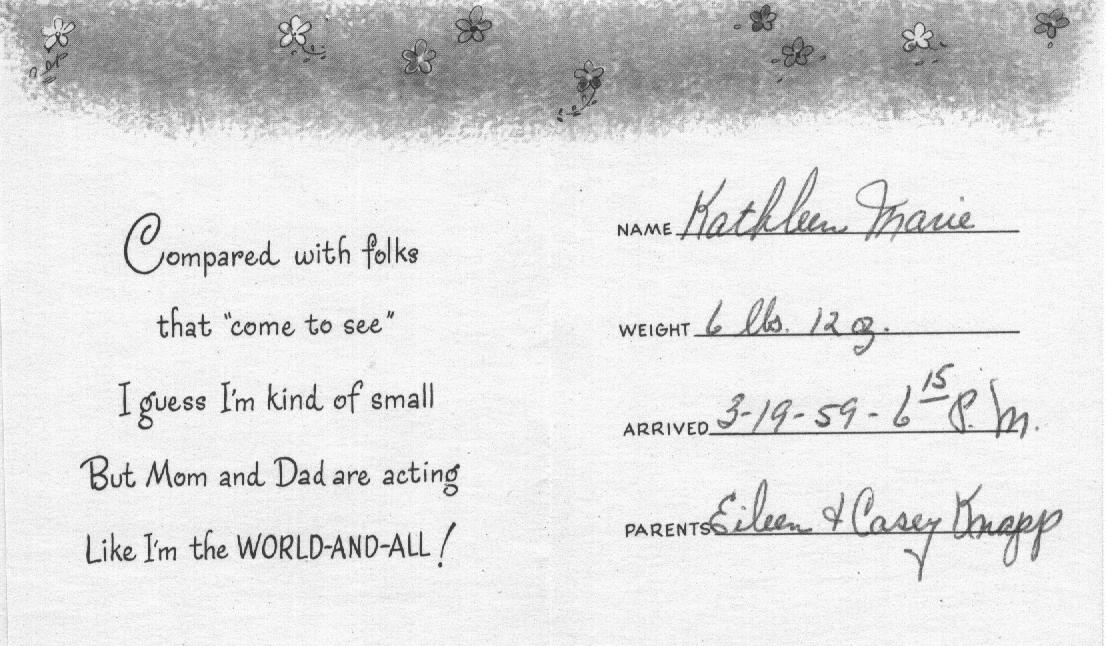 Compared with folks
that "come to see"
I guess I'm kind of small
But Mom and Dad are acting
Like I'm the WORLD-AND-ALL!
NAME Kathleen Marie
WEIGHT 6 lbs. 12 oz.
ARRIVED 3-19-59-6 15 P.M.
PARENTS Eileen & Casey Knapp